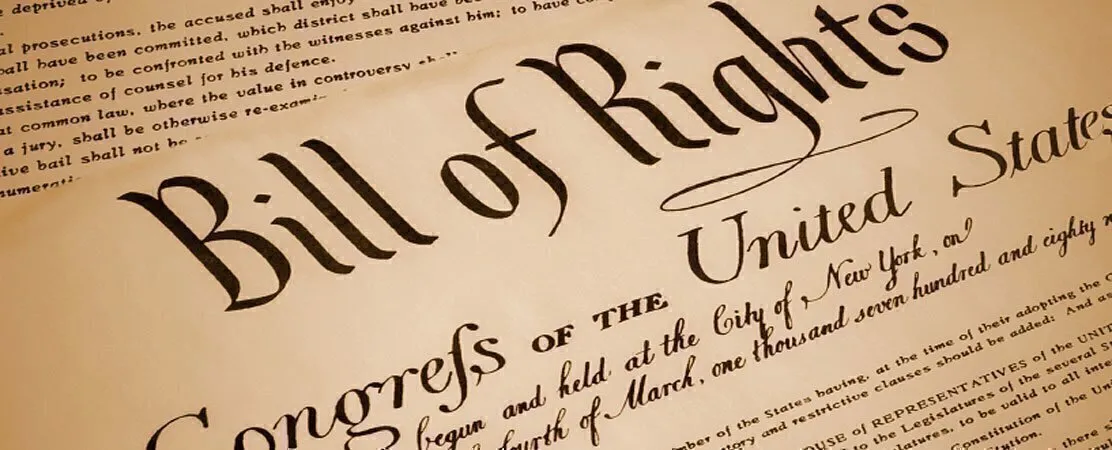 deprived of
al prosecutions, the accused shall enjoy
all have been committed, which district shall have
sation; to be confronted with the witnesses against him; to have
ssistance of counsel for his defence.
at common law, where the value in controversy
a jury, shall be otherwise re-exami
ive bail shall not be
numerati
Bill of Rights
Congreſs OF THE United States
begun and held at the City of New York, on
fourth of March, one thousand seven hundred and eighty
mber of the States having, at the time of their adopting the
tory and restrictive clauses should be added: And
OUSE of REPRESENTATIVES of the UNIT
to the Legislatures of the several
latures, to be valid to all
Constitution of the
tution.